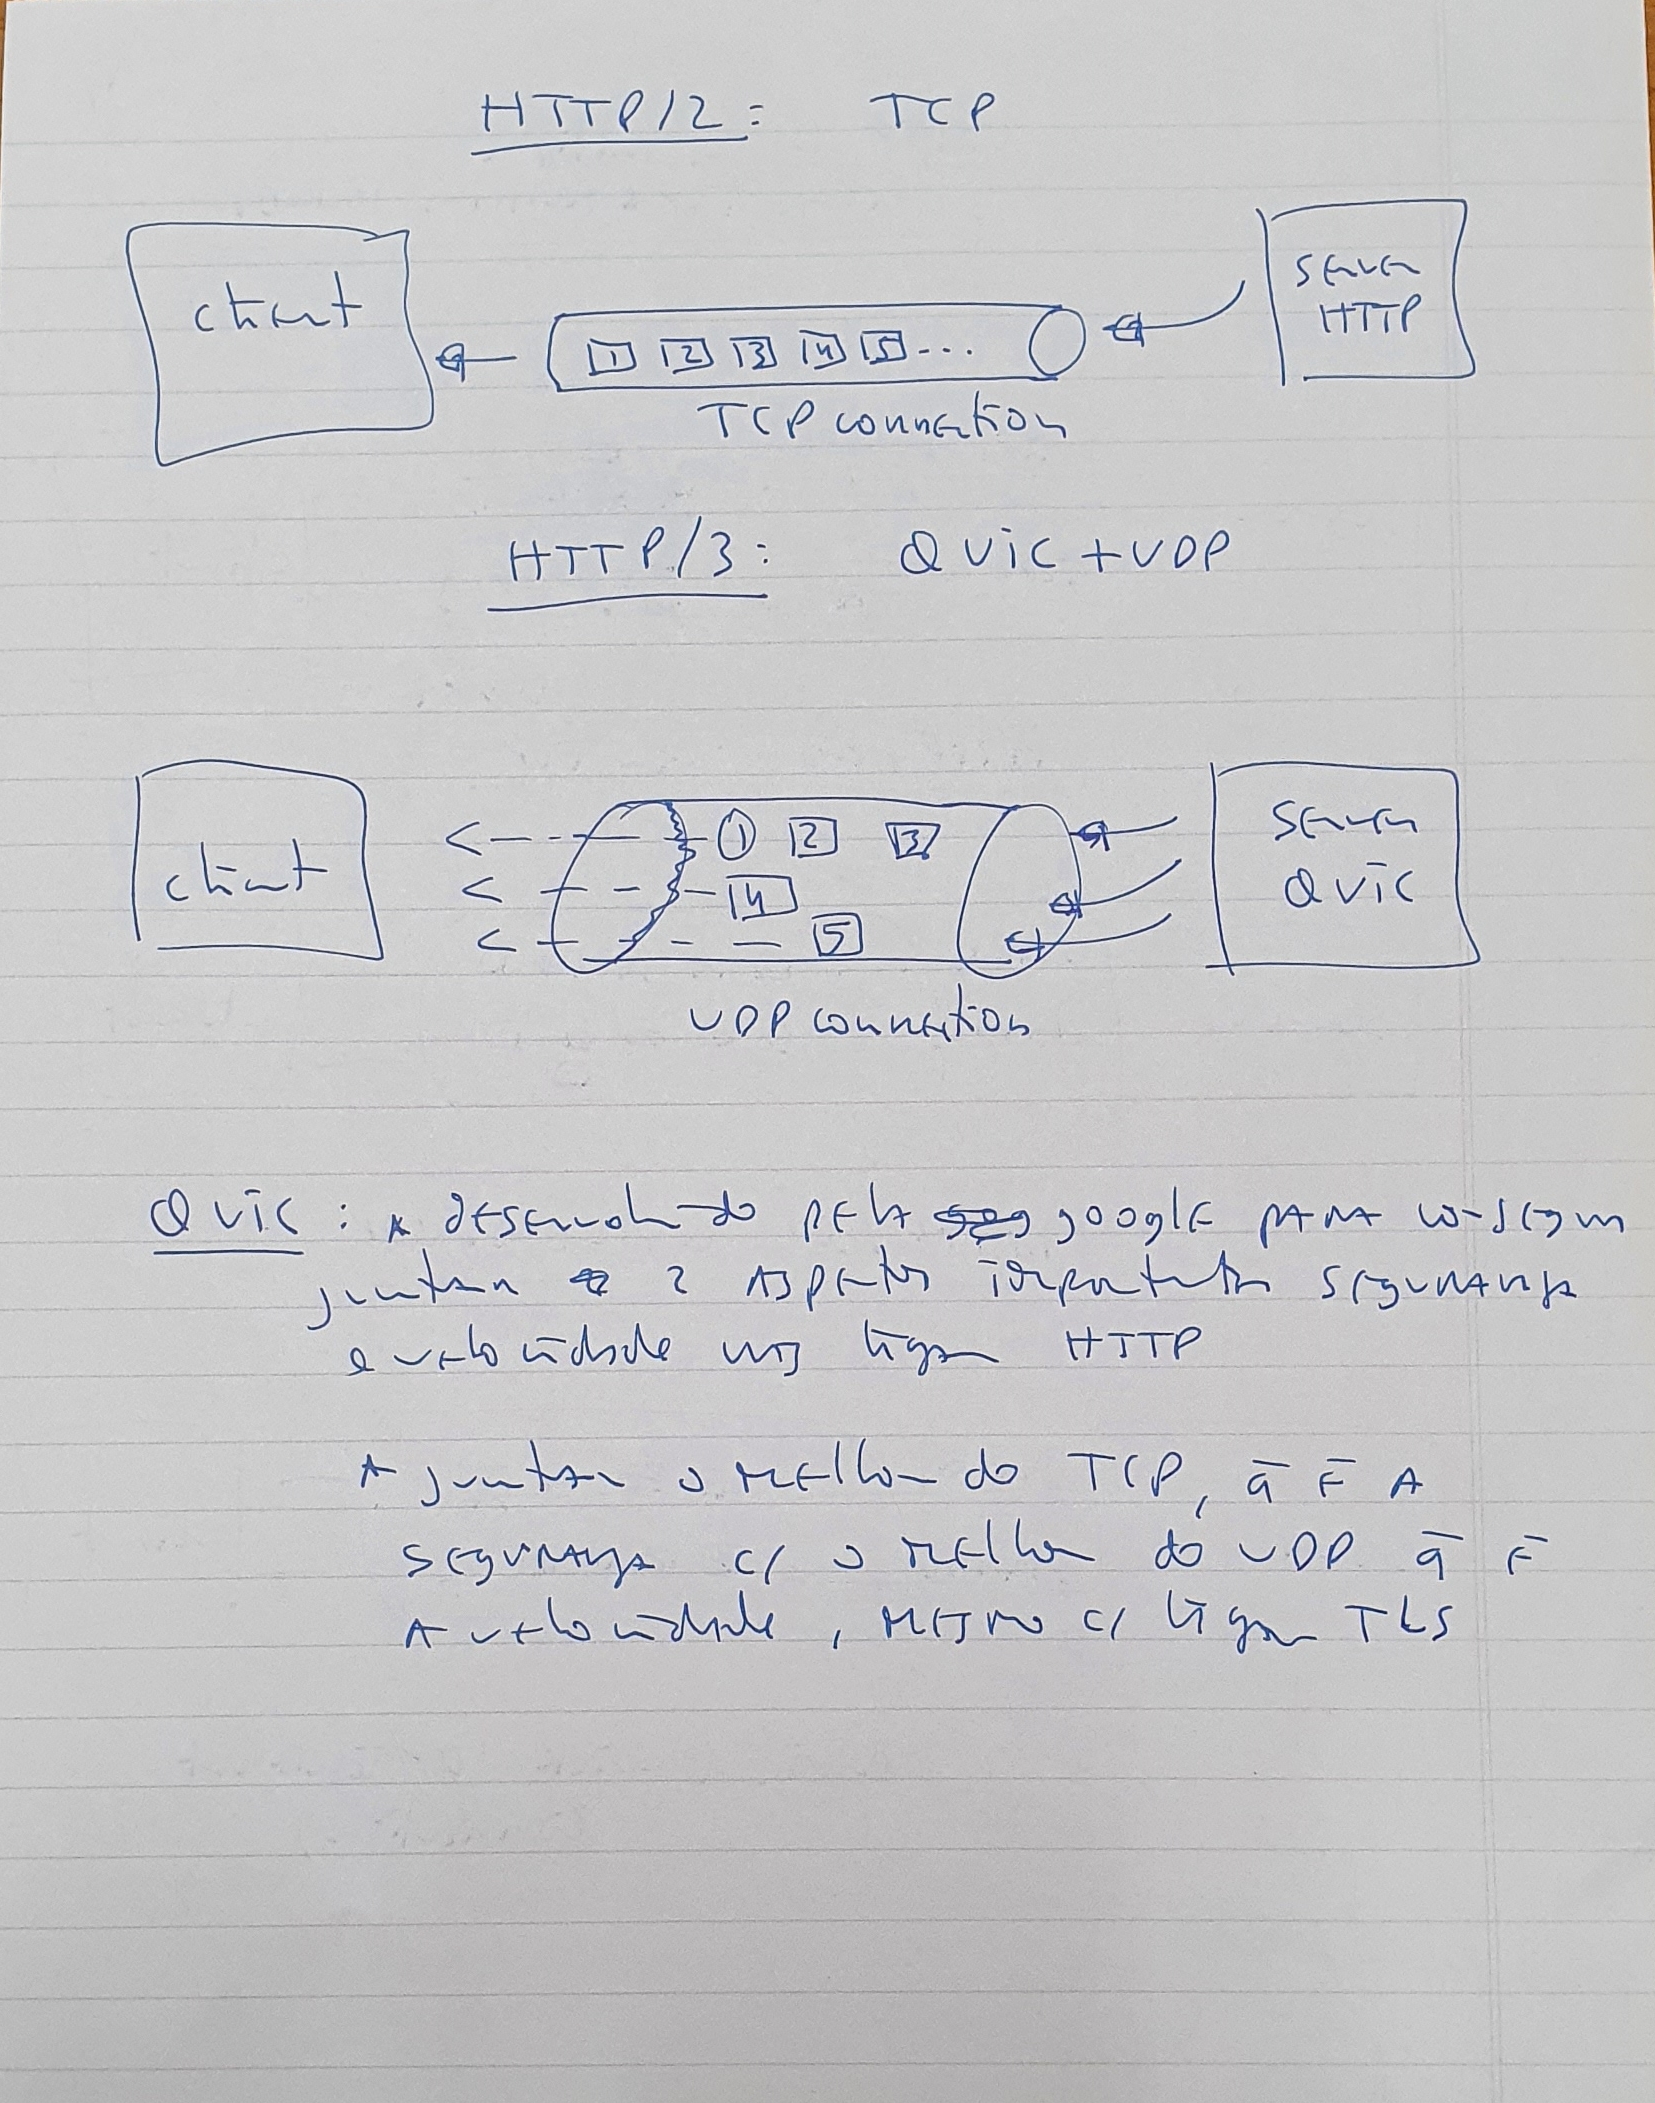 HTTP/2: TCP
client
server
HTTP
1 2 3 4 5 ...
TCP connection
HTTP/3: QUIC + UDP
client
1 2 3
4
5
server
QUIC
UDP connection
QUIC: desenvolvido pela google para conseguir
juntar 2 aspectos importantes segurança
e velocidade nas ligações HTTP
juntar o melhor do TCP, q̄ é a
segurança c/ o melhor do UDP q̄ é
a velocidade, mesmo c/ ligações TLS